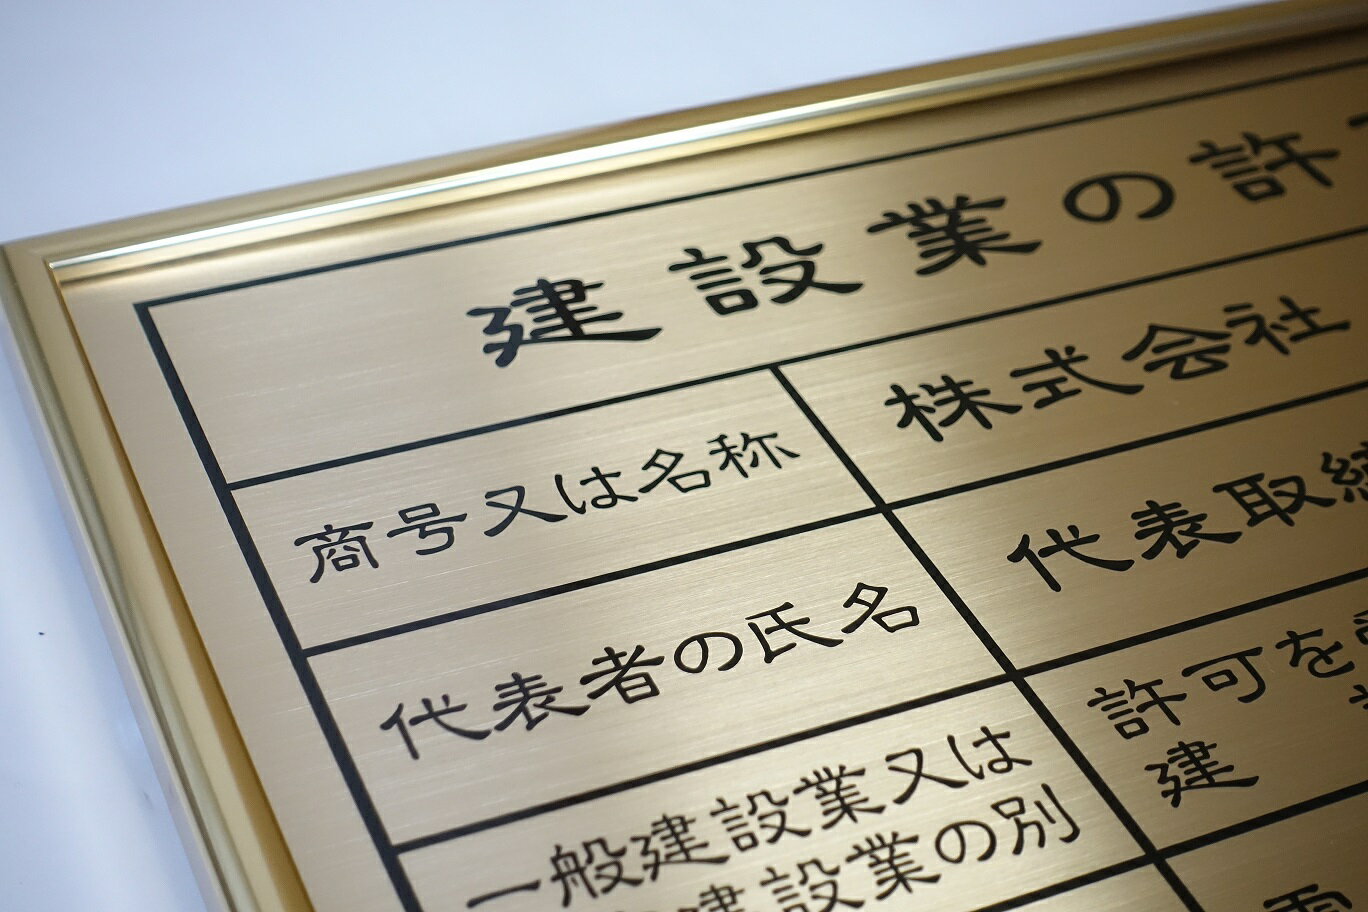 建設業の許
商号又は名称
株式会社
代表者の氏名
代表取締
一般建設業又は
建設業の別
許可を
建